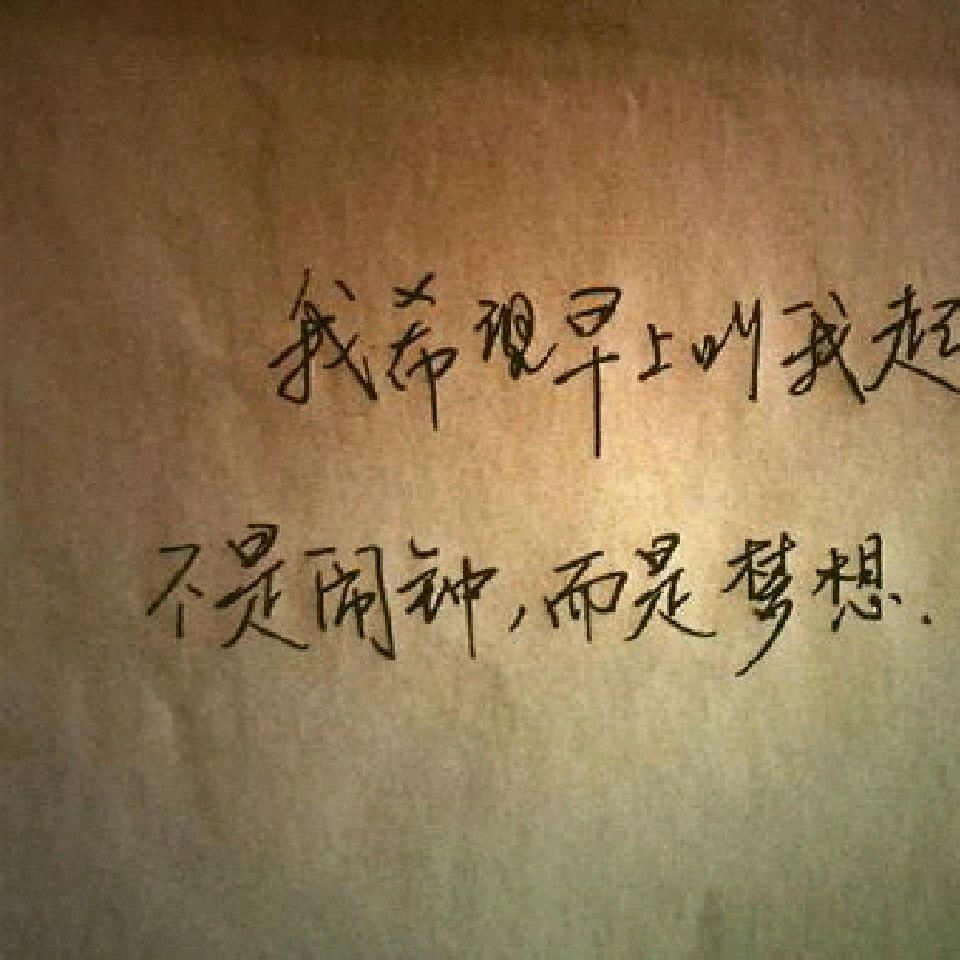 我希望早上叫我起
不是闹钟,而是梦想.